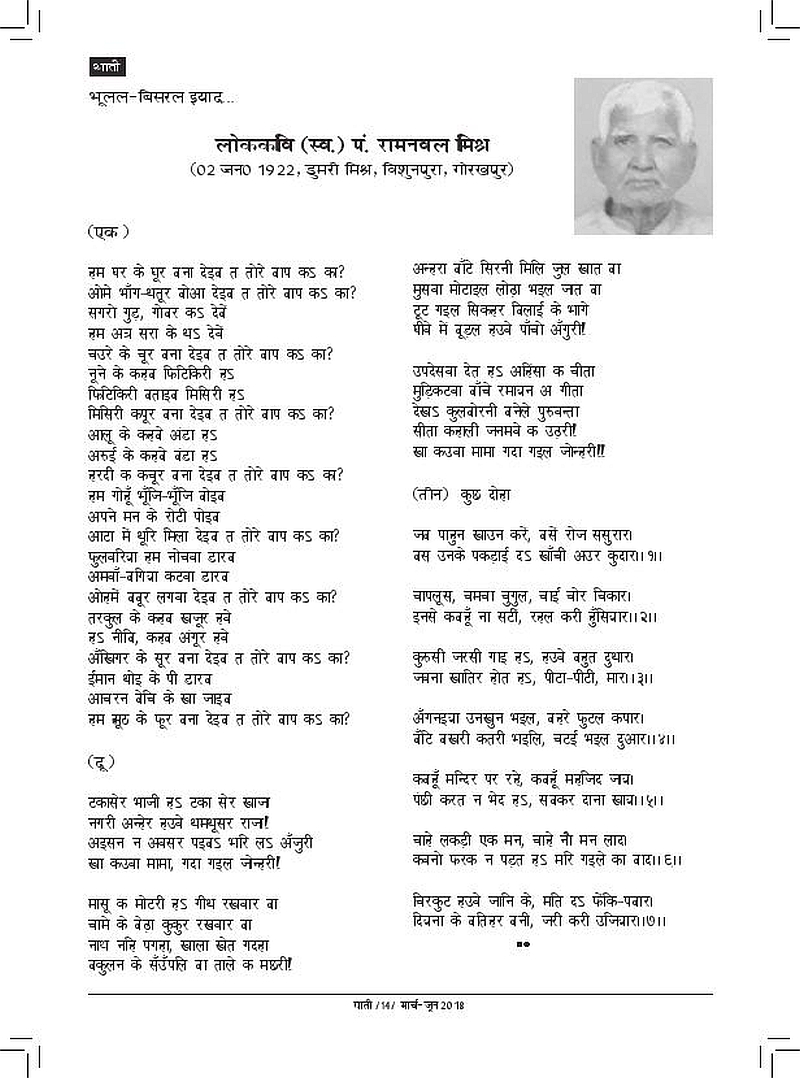 थाती
भूलल-बिसरल इयाद...
लोककवि (स्व.) पं. रामनवल मिश्र
(02 जन0 1922, डुमरी मिश्र, विशुनपुरा, गोरखपुर)
(एक)
हम घर के घूर बना देइब त तोरे बाप कऽ का?
ओमे भाँग-धतूर बोआ देइब त तोरे बाप कऽ का?
सगरो गुड़, गोबर कऽ देबें
हम अत्र सरा के धऽ देबें
चउरे के चूर बना देइब त तोरे बाप कऽ का?
नूने के कहब फिटिकिरी हऽ
फिटिकिरी बताइब मिसिरी हऽ
मिसिरी कपूर बना देइब त तोरे बाप कऽ का?
आलू के कहबे अंटा हऽ
अरुई के कहबे बंटा हऽ
हरदी क कचूर बना देइब त तोरे बाप कऽ का?
हम गोहूँ भूँजि-भूँजि बोइब
अपने मन के रोटी पोइब
आटा में धूरि मिला देइब त तोरे बाप कऽ का?
फुलवरिया हम नोचवा डारब
अमवाँ-बगिया कटवा डारब
ओहमें बबूर लगवा देइब त तोरे बाप कऽ का?
तरकुल के कहब खजूर हवे
हऽ नीबि, कहब अंगूर हवे
आँखिगर के सूर बना देइब त तोरे बाप कऽ का?
ईमान धोइ के पी डारब
आचरन बेचि के खा जाइब
हम झूठ के फूर बना देइब त तोरे बाप कऽ का?
(दू)
टकासेर भाजी हऽ टका सेर खाजा
नगरी अन्हेर हउवे थमधूसर राजा!
अइसन न अवसर पइबऽ भरि लऽ अँजुरी
खा कउवा मामा, गदा गइल जोन्हरी!
मासू क मोटरी हऽ गीध रखवार बा
चामे के बेढ़ा कुकुर रखवार बा
नाथ नहि पगहा, खाला खेत गदहा
बकुलन के सँउँपलि बा ताले क मछरी!
अन्हरा बाँटे सिरनी मिलि जुल खात बा
मुसवा मोटाइल लोढ़ा भइल जात बा
टूट गइल सिकहर बिलाई के भागे
घीवे में बूड़ल हउवे पाँचो अँगुरी!
उपदेसवा देत हऽ अहिंसा क चीता
मुड़िकटवा बाँचे रमायन अ गीता
देखऽ कुलबोरनी बनेले पुरुबन्ता
सीता कहाली जनमवे क उठरी!
खा कउवा मामा गदा गइल जोन्हरी!!
(तीन) कुछ दोहा
जब पाहुन खाउन करें, बसें रोज ससुरार।
बस उनके पकड़ाई दऽ खाँची अउर कुदार।।१।।
चापलूस, चमचा चुगुल, चाई चोर चिकार।
इनसे कबहूँ ना सटीं, रहल करी हुँसियार।।२।।
कुरुसी जरसी गाइ हऽ, हउवे बहुत दुधार।
जवना खातिर होत हऽ, पीटा-पीटी, मार।।३।।
अँगनइया उनखुन भइल, बहरे फुटल कपार।
बाँटि बखरी कतरी भइलि, चटई भइल दुआर।।४।।
कबहूँ मन्दिर पर रहे, कबहूँ महजिद जाय।
पंछी करत न भेद हऽ, सबकर दाना खाय।।५।।
चाहे लकड़ी एक मन, चाहे नौ मन लाद।
कवनो फरक न पड़त हऽ मरि गइले का बाद।।६।।
चिरकुट हउवे जानि के, मति दऽ फेंकि-पवार।
दियना के बतिहर बनी, जरी करी उजियार।।७।।
पाती /14/ मार्च-जून 2018